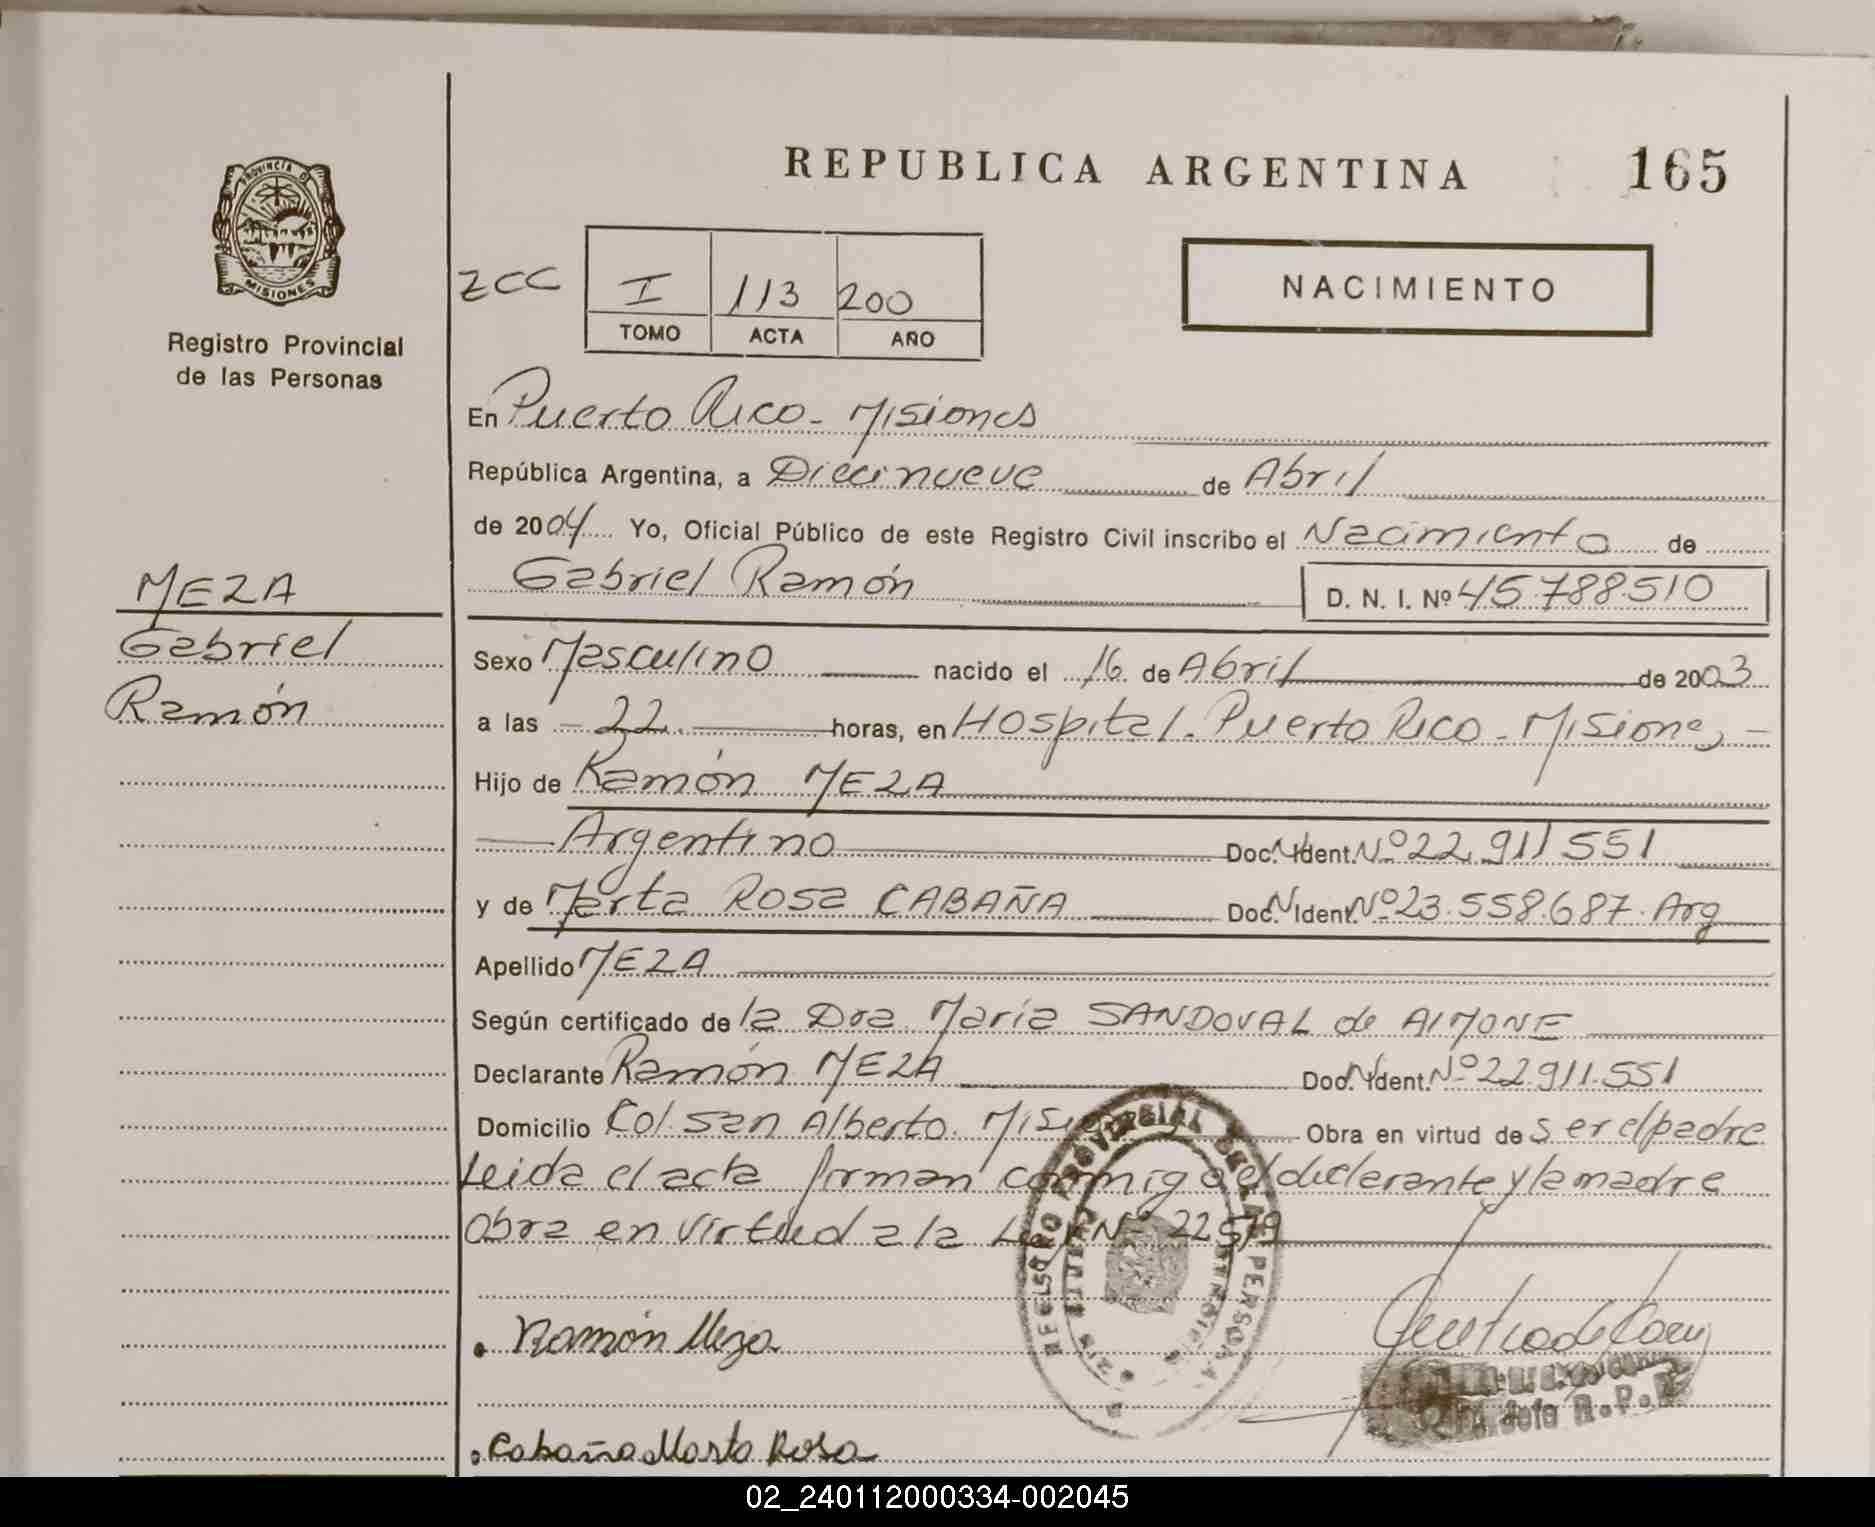 REPUBLICA ARGENTINA 165
PROVINCIA D
MISIONES
Registro Provincial
de las Personas
ZCC I 113 200
TOMO ACTA AÑO
NACIMIENTO
En Puerto Rico - Misiones
República Argentina, a Diecinueve de Abril
de 2004 Yo, Oficial Público de este Registro Civil inscribo el Nacimiento de
Gabriel Ramón D. N. I. Nº 45.788.510
MEZA
Gabriel
Ramón
Sexo Masculino nacido el 16 de Abril de 2003
a las - 22. horas, en Hospital. Puerto Rico - Misiones -
Hijo de Ramón MEZA
Argentino Doc. Ident. Nº 22.911 551
y de Marta Rosa CABAÑA Doc. Ident. Nº 23.558.687. Arg
Apellido MEZA
Según certificado de la Dra. María SANDOVAL de AIMONE
Declarante Ramón MEZA Doc. Ident. Nº 22.911.551
Domicilio Col. San Alberto. Obra en virtud de ser el padre
Leida el acta firman conmigo el declarante y la madre
Obra en virtud a la Ley Nº 22519
REGISTRO PROVINCIAL DE LAS PERSONAS
Ramón Meza
Jefe R.P.P
Cabaña Marta Rosa
02_240112000334-002045